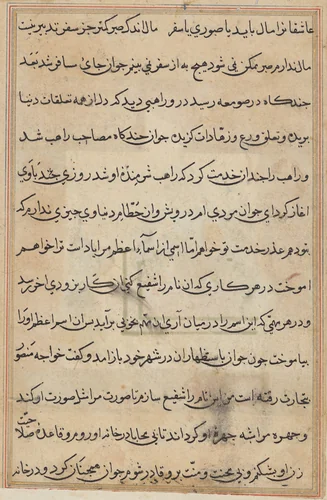 عاشقانرا مال باید یا صبوری یا سفر مال اندک صبر کمتر جز سفر تدبیر نیست
مال ندارم صبر ممکن نمی شود هیچ به از سفر نمی بینم جوان جائی سافر شد بعد
چندگاه در صومعه رسید درو راهبی دید که دل از همه تعلقات دنیا
بریده و تعلق ورع و زهادات کزیده جوان چندگاه مصاحب راهب شد
و راهب را چندان خدمت کرد که راهب شرمنده او شد روزی جند با وی
اغاز کرد ای جوان مردی ام درویش و از حطام دنیاوی چیزی ندارم که
بود هم عذر خدمت تو خواهم اما اسمی از اسماء اعظم مرا یاد است ترا خواهم
اموخت در هر کاری که ان نام را شفیع کنی ان کار بزودی اخر رسد
و در هر مهمی که این اسم را در میان آری ان مهم بخوبی برآید پس ان اسم اعظم او را
بیاموخت چون جوان با ستظهار ان در شهر خود باز امد و کفت خواجه منصور
بتجارت رفته است من این نام را شفیع سازم تا صورت مرا شبه صورت او کند
و چهره مرا شبه چهره او کرداند تا بی محابا در خانه او روم و قاعده صلاحیت
زن او بشکنم و بی محنت و منت برو قادر شوم جوان همچنان کرد و در خانه